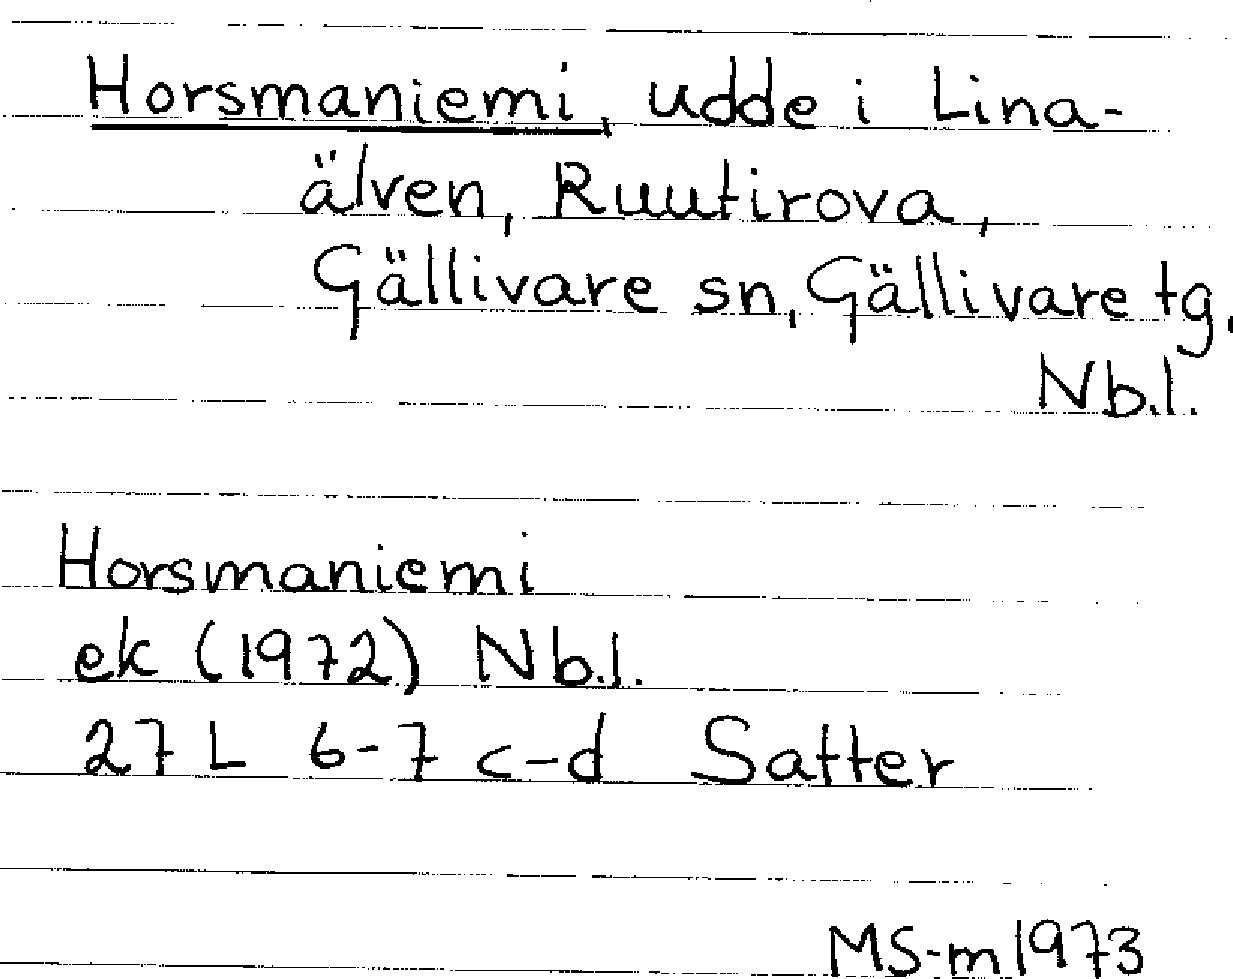 Horsmaniemi, udde i Lina-
älven, Ruutirova,
Gällivare sn, Gällivare tg.
Nb.l.
Horsmaniemi
ek (1972) Nb.l.
27 L 6-7 c-d Satter
MS-m 1973